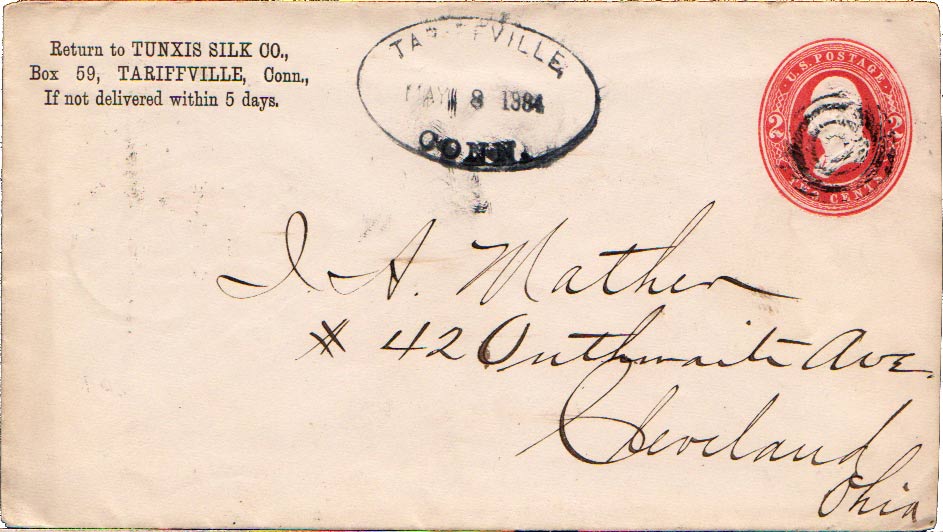 Return to TUNXIS SILK CO.,
Box 59, TARIFFVILLE, Conn.,
If not delivered within 5 days.
TARIFFVILLE,
MAY 8 1884
CONN.
U.S. POSTAGE
2 2
TWO CENTS
I. A. Mather
# 42 Outhwaite Ave.
Cleveland
Ohio